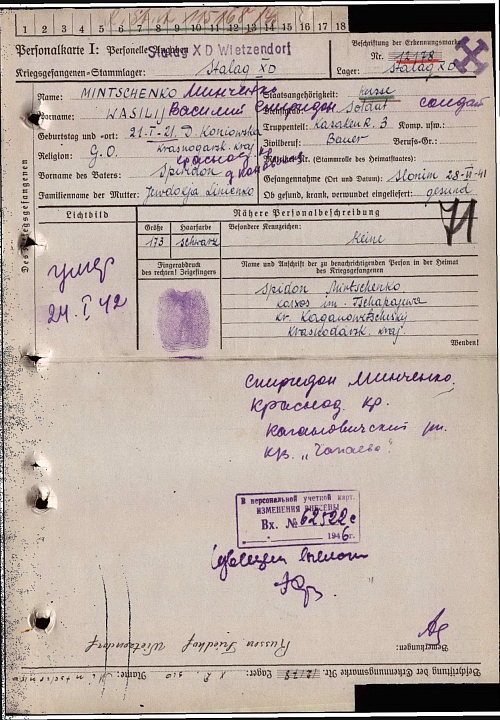 1 2 3 4 5 6 7 8 9 10 11 12 13 14 15 16 17 18
Personalkarte I: Personelle Angaben
Stalag XD Wietzendorf
Beschriftung der Erkennungsmarke
Nr. 12178
Kriegsgefangenen-Stammlager: Stalag XD
Lager: Stalag XD
Des Kriegsgefangenen
Name: MINTSCHENKO Минченко
Vorname: WASILIJ Василий Спиридон
Geburtstag und -ort: 21.I-21. D Koniowska
Krasnodarsk. kraj
Религion: G.O.
Vorname des Vaters: Spiridon
Familienname der Mutter: Jewdokja Linienko
Staatsangehörigkeit: Russe
Dienstgrad: Soldat солдат
Truppenteil: Karaken R. 3 Komp. usw.:
Zivilberuf: Bauer Berufs-Gr.:
Matrikel Nr. (Stammrolle des Heimatstaates):
Gefangennahme (Ort und Datum): Slonim 28-VI-41
Ob gesund, krank, verwundet eingeliefert: gesund
Lichtbild
Nähere Personalbeschreibung
Größe Haarfarbe Besondere Kennzeichen:
173 schwarz Keine
Fingerabdruck
des rechten! Zeigefingers
Name und Anschrift der zu benachrichtigenden Person in der Heimat
des Kriegsgefangenen
Spidon Mintschenko
kolxos im. Tschapajewa
kr. Kaganowitschiskij
Krasnodarsk. kraj
Wenden!
умер
24.I.42
Спиридон Минченко.
Краснод. кр.
Кагановичский рн.
кз. „Чапаева"
В персональной учетной карт.
ИЗМЕНЕНИЯ ВНЕСЕНЫ
Вх. № 62522с
1946г.
Bemerkungen:
Russen Friedhof Wietzendorf
Beschriftung der Erkennungsmarke Nr. 12178 Lager: X D 310 Name: Mintschenko